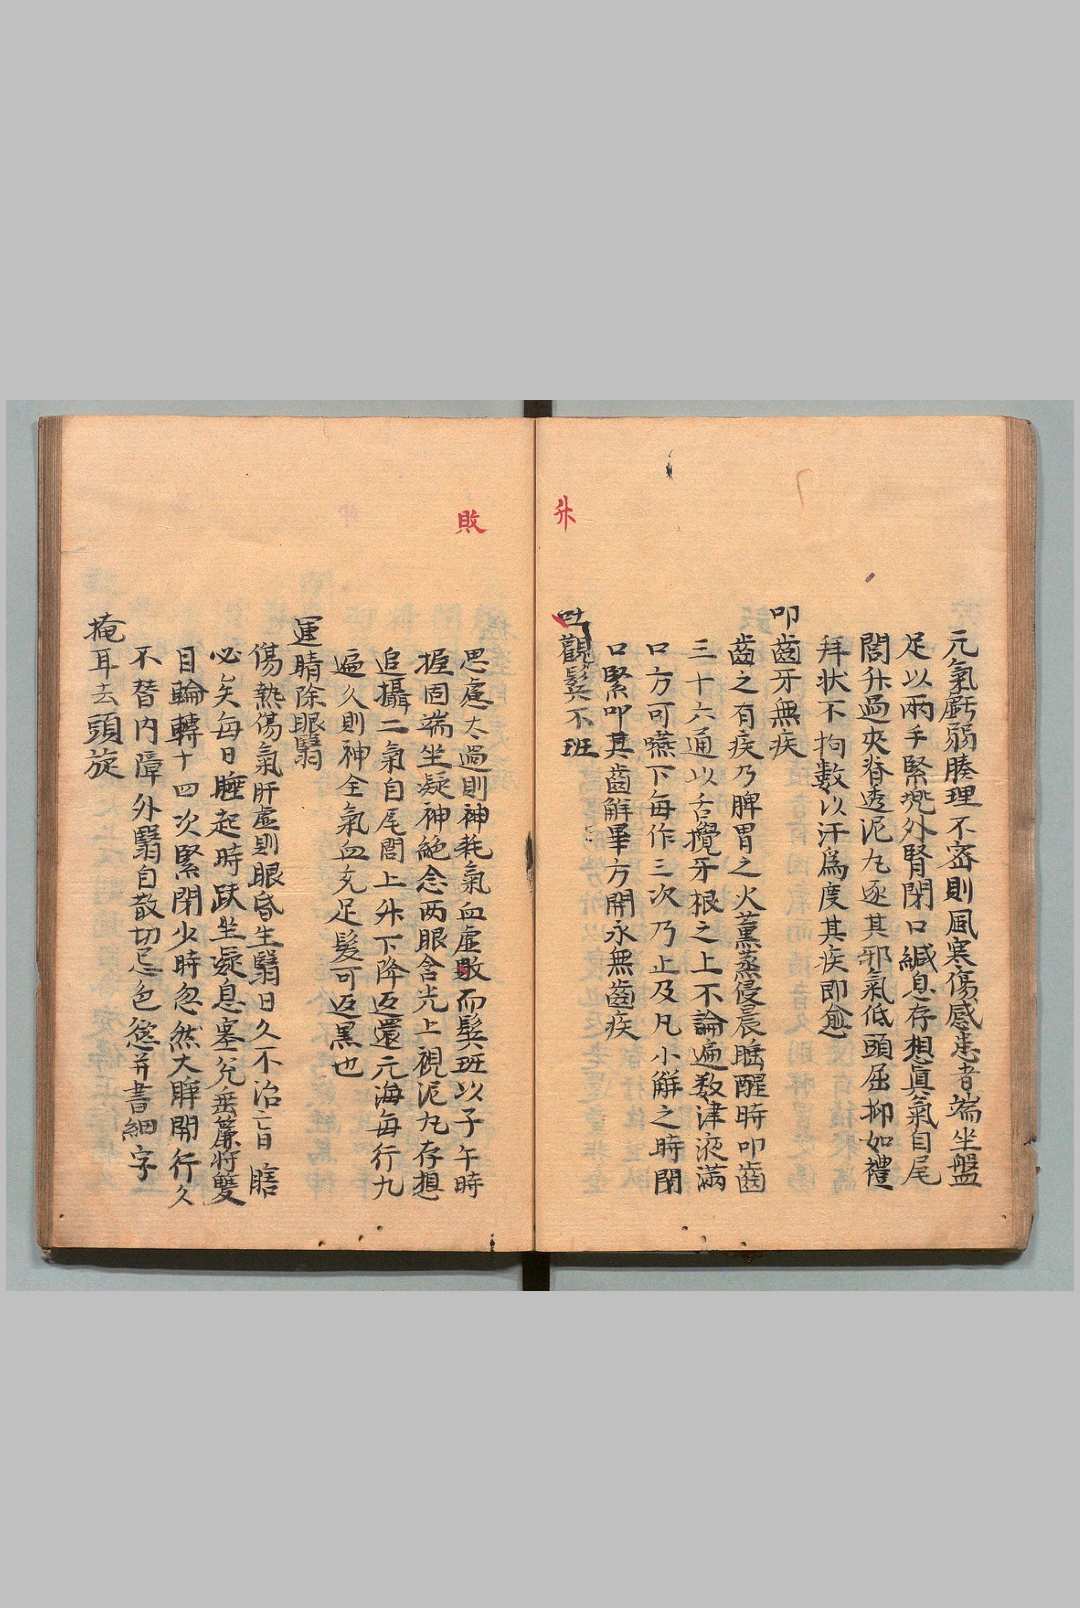 元氣虧弱腠理不密則風寒傷感患者端坐盤
足以兩手緊兠外腎閉口緘息存想眞氣自尾
閭升過夾脊透泥丸逐其邪氣低頭屈抑如禮
拜状不拘數以汗爲度其疾即愈
叩齒牙無疾
齒之有疾乃脾胃之火薰蒸侵晨睡醒時叩齒
三十六通以舌攪牙根之上不論遍数津液滿
口方可嚥下每作三次乃止及凡小解之時閉
口緊叩其齒解畢方開永無齒疾
升
觀鬓不班
敗
思慮太過則神耗氣血虛敗而鬓班以子午時
握固端坐凝神絶念两眼含光上視泥丸存想
追攝二氣自尾閭上升下降返還元海每行九
遍久則神全氣血充足髮可返黒也
運睛除眼翳
傷熱傷氣肝虛則眼昏生翳日久不治亡目瞎
必矣每日睡起時趺坐凝息塞兊垂簾將雙
目輪轉十四次緊閉少時忽然大睜開行久
不替内障外翳自散切忌色慾并書細字
掩耳去頭旋